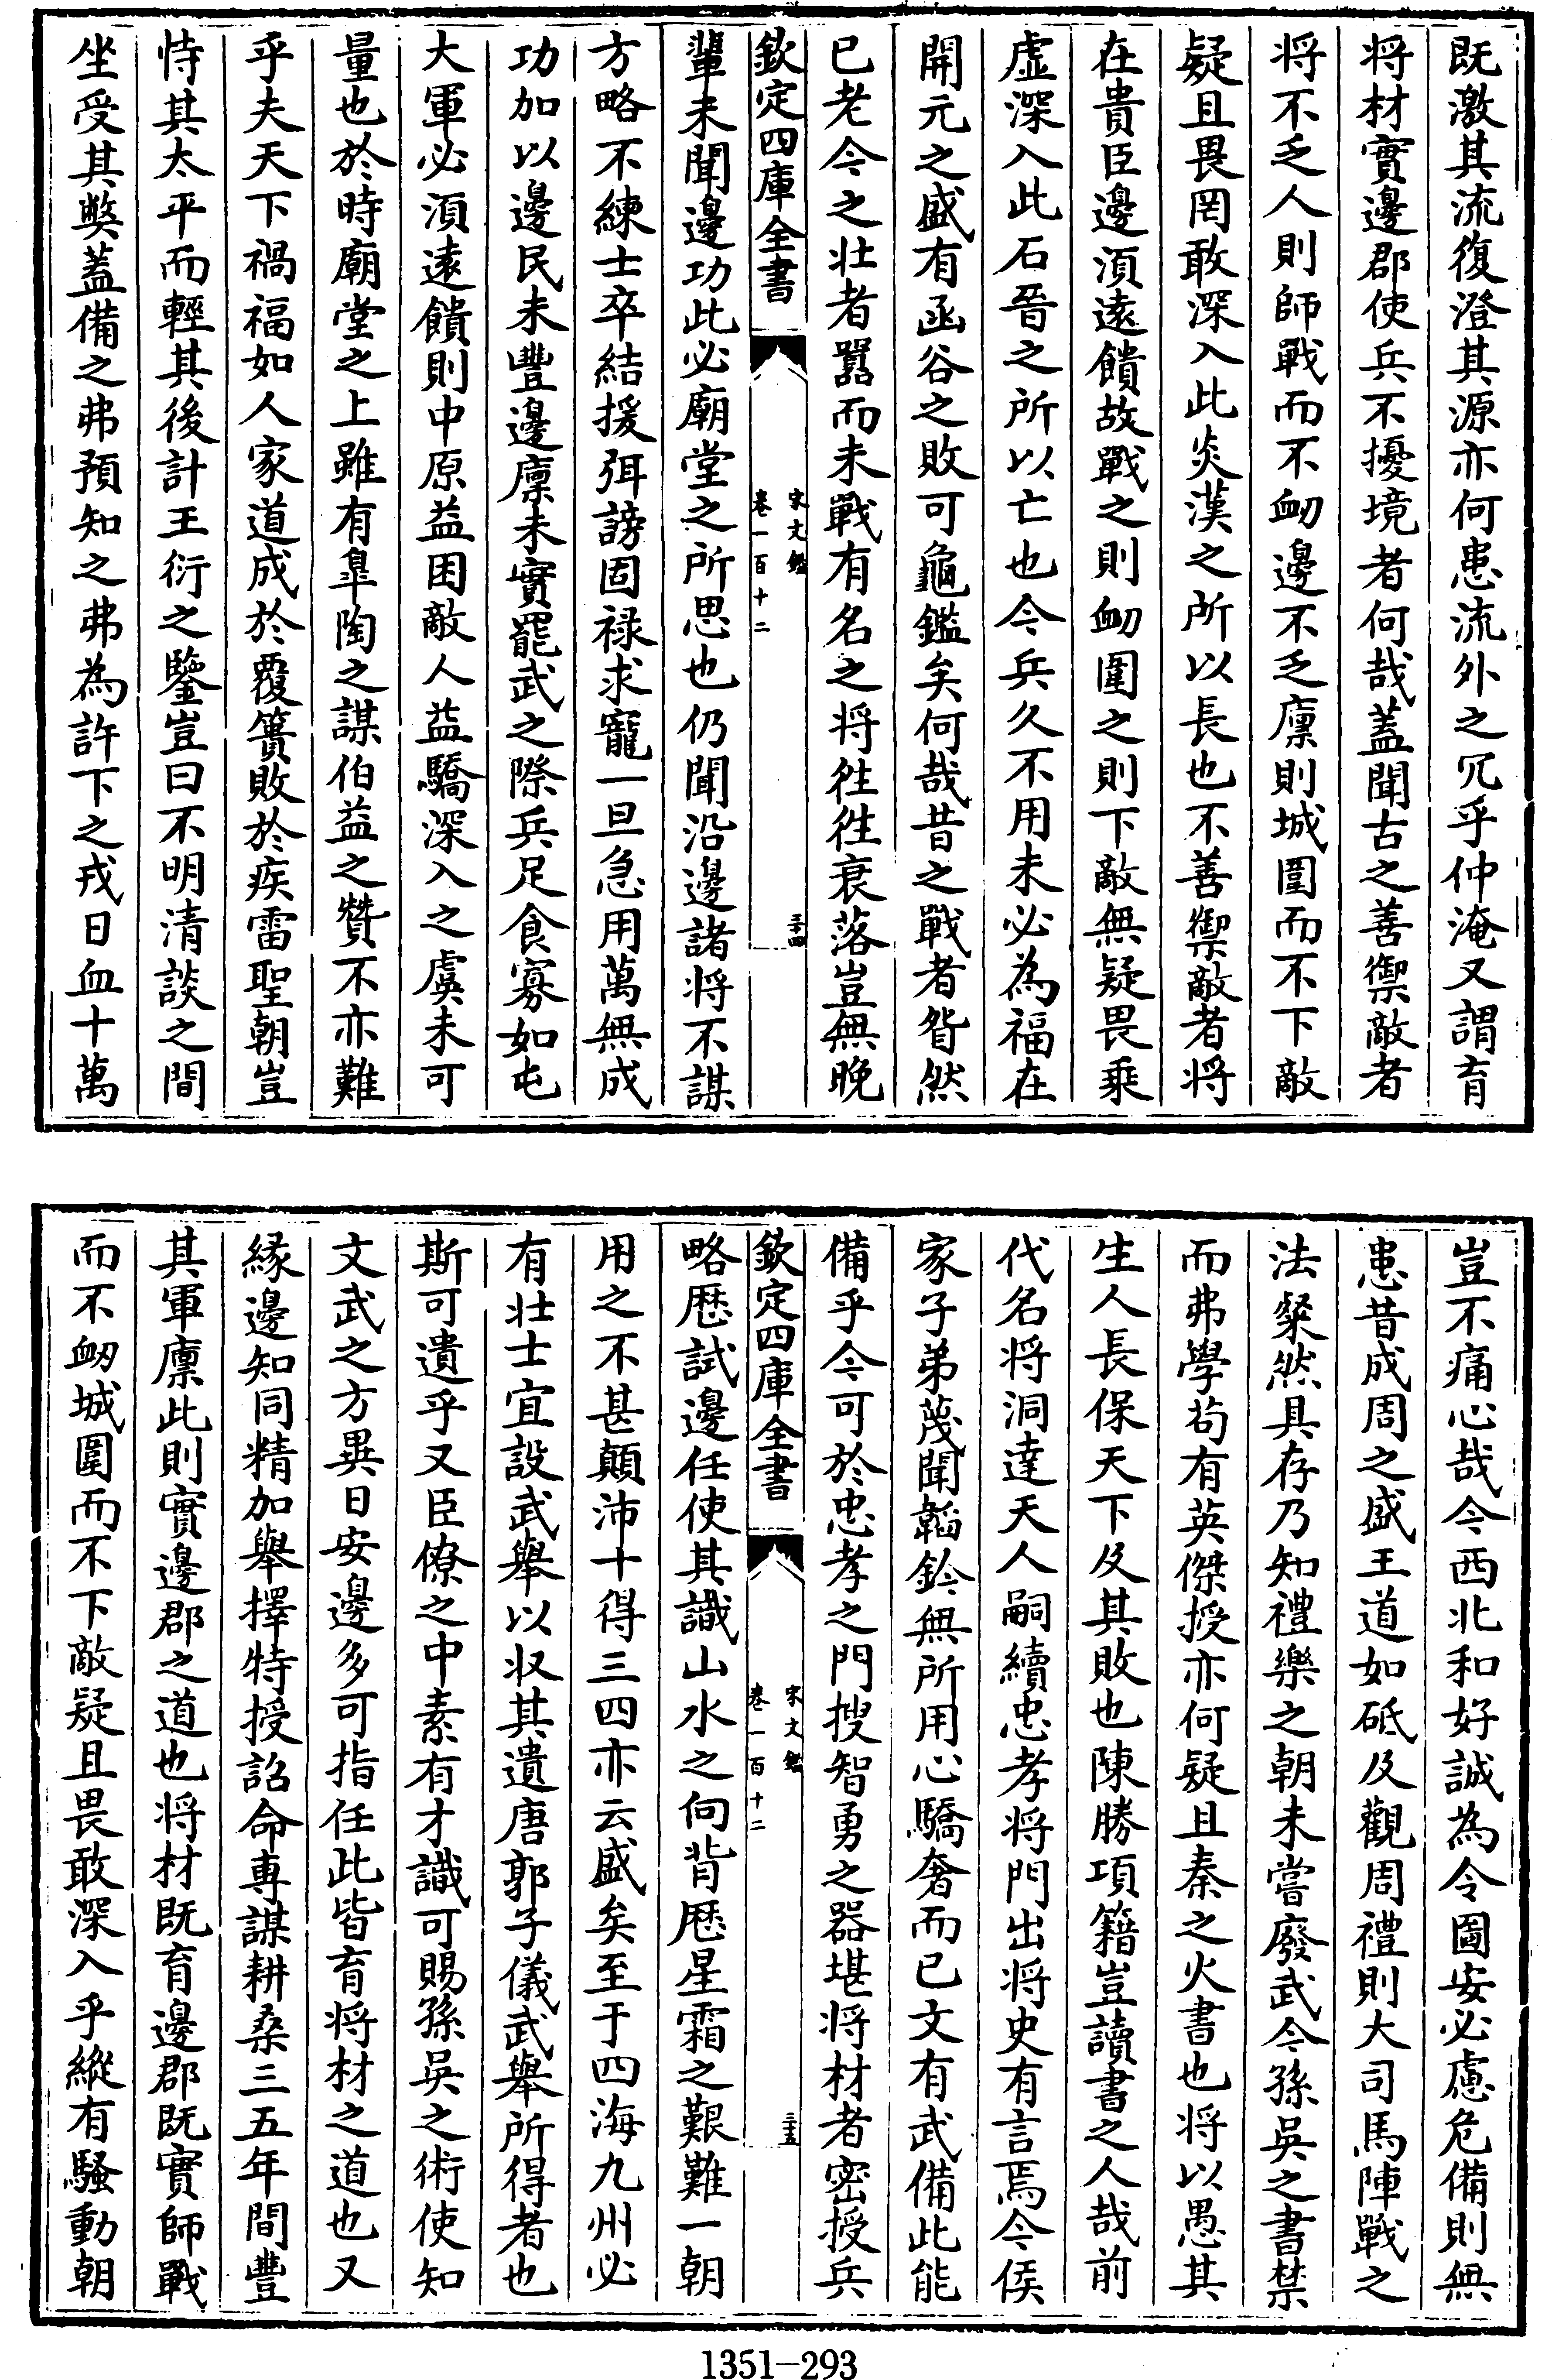 既激其流復澄其源亦何患流外之冗乎仲淹又謂育
将材實邊郡使兵不擾境者何哉蓋聞古之善禦敵者
将不乏人則師戰而不衂邊不乏廪則城圍而不下敵
疑且畏罔敢深入此炎漢之所以長也不善禦敵者将
在貴臣邊湏遠饋故戰之則衂圍之則下敵無疑畏乘
虚深入此石晉之所以亡也今兵久不用未必為福在
開元之盛有函谷之敗可龜鑑矣何哉昔之戰者㫺然
已老今之壮者囂而未戰有名之将徃徃衰落豈無晚
欽定四庫全書
宋文鑑
卷一百十二
三十四
輩未聞邊功此必廟堂之所思也仍聞沿邊諸将不謀
方略不練士卒結援弭謗固禄求寵一旦急用萬無成
功加以邊民未豐邊廪未實罷武之際兵足食寡如屯
大軍必湏逺饋則中原益困敵人益驕深入之虞未可
量也於時廟堂之上雖有臯陶之謀伯益之贊不亦難
乎夫天下禍福如人家道成於覆簣敗於疾雷聖朝豈
恃其太平而輕其後計王衍之鑒豈曰不明清談之間
坐受其弊蓋備之弗預知之弗為許下之戎日血十萬
豈不痛心哉今西北和好誠為令圖安必慮危備則無
患昔成周之盛王道如砥及觀周禮則大司馬陣戰之
法粲然具存乃知禮樂之朝未嘗廢武今孫吳之書禁
而弗學苟有英傑授亦何疑且秦之火書也将以愚其
生人長保天下及其敗也陳勝項籍豈讀書之人哉前
代名将洞達天人嗣續忠孝将門出将史有言焉今侯
家子弟蔑聞韜鈐無所用心驕奢而已文有武備此能
備乎今可於忠孝之門搜智勇之器堪将材者密授兵
欽定四庫全書
宋文鑑
卷一百十二
三十五
略歴試邊任使其識山水之向背歴星霜之艱難一朝
用之不甚顛沛十得三四亦云盛矣至于四海九州必
有壮士宜設武舉以収其遺唐郭子儀武舉所得者也
斯可遺乎又臣僚之中素有才識可賜孫吳之術使知
文武之方異日安邊多可指任此皆育将材之道也又
緣邊知同精加舉擇特授詔命專謀耕桑三五年間豐
其軍廪此則實邊郡之道也将材既育邊郡既實師戰
而不衂城圍而不下敵疑且畏敢深入乎縱有騷動朝
1351-293